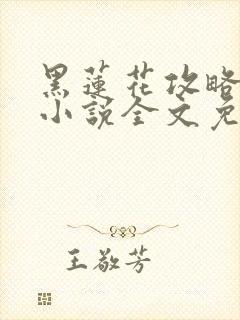 黑蓮花攻略
小說全文免
王敬芳